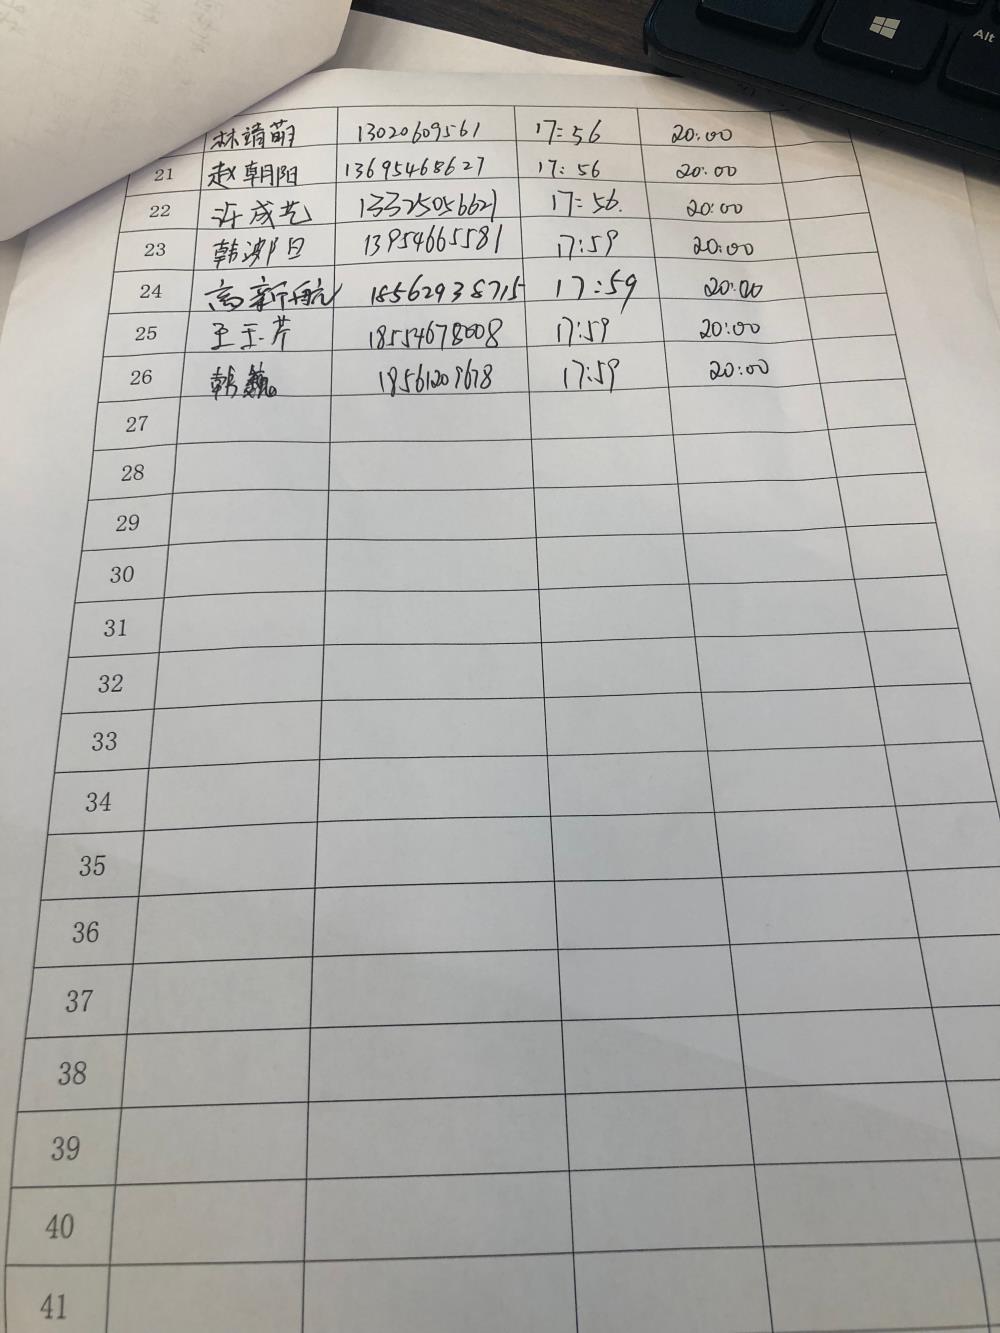 林靖萌 13020609561 17:56 20:00
21 赵朝阳 13695468627 17:56 20:00
22 许成艺 13325056621 17:56. 20:00
23 韩 13954665581 17:59 20:00
24 高新航 18562938715 17:59 20:00
25 王玉芹 18554678008 17:59 20:00
26 韩巍 18561209678 17:59 20:00
27
28
29
30
31
32
33
34
35
36
37
38
39
40
41
Alt